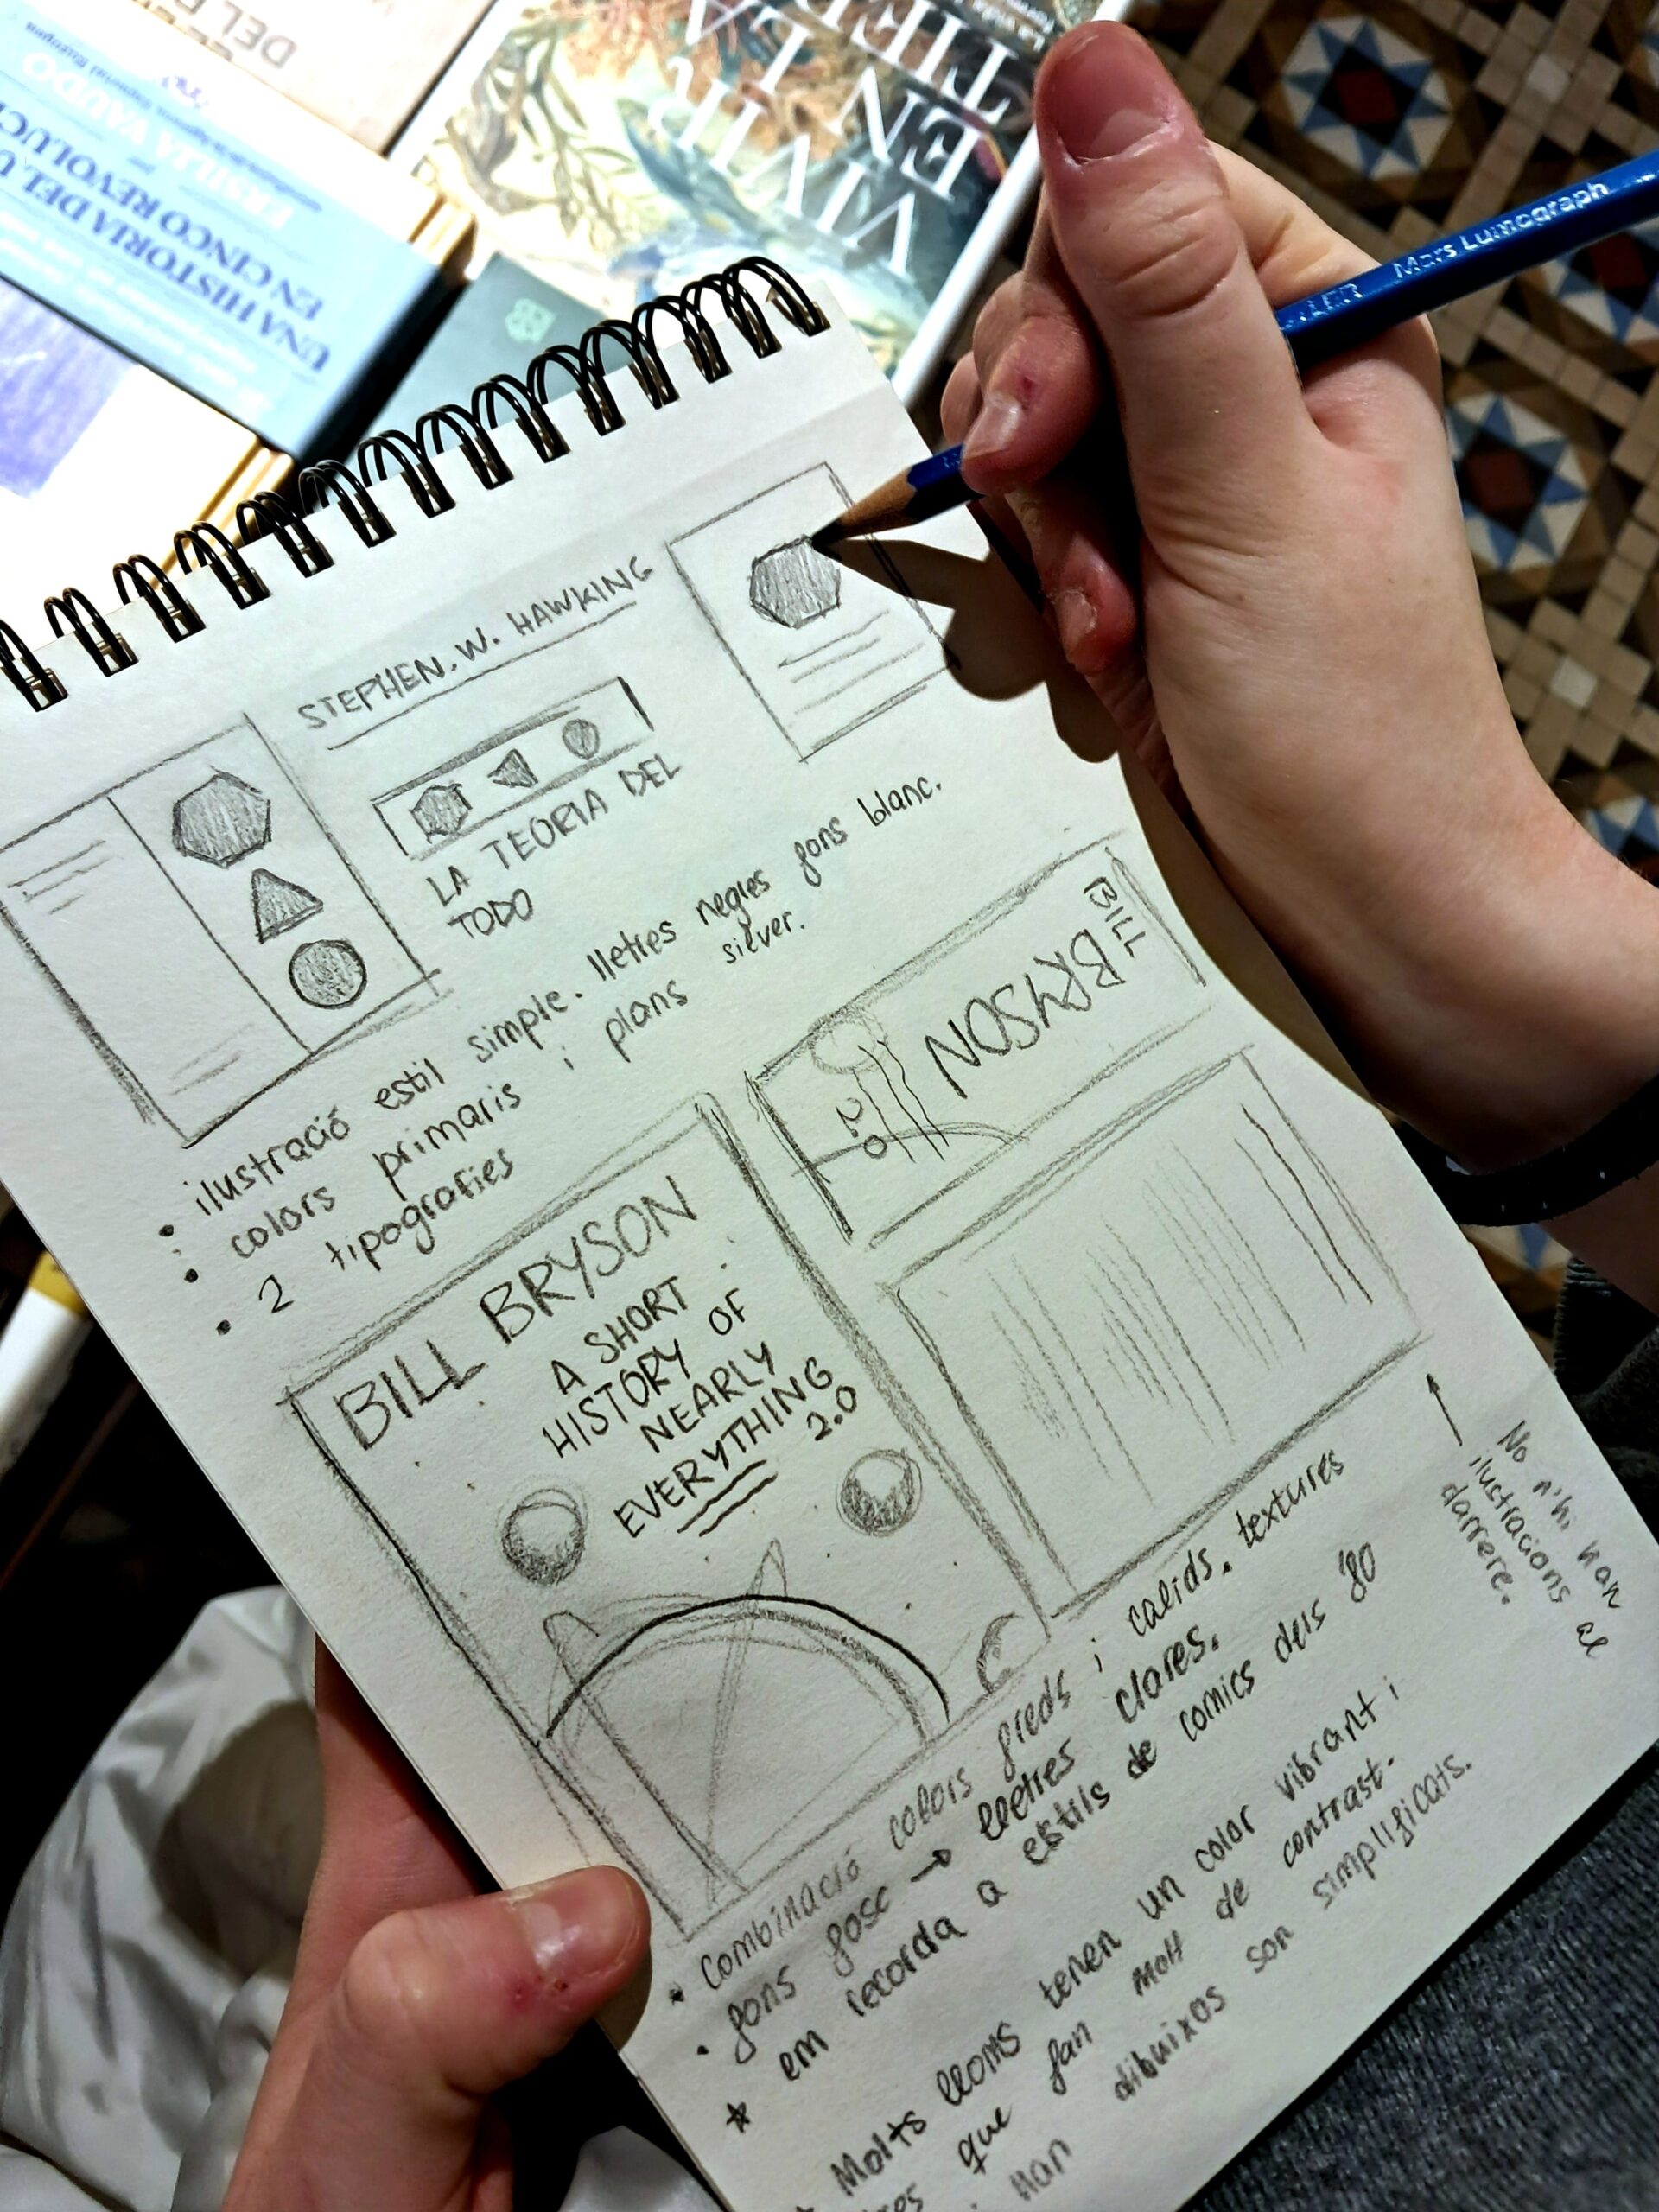 DEL
UNA HISTORIA DEL U
EN CINCO REVOLUCI
por
ERSILIA VAUDO
VIVIR
EN LA
TIER
Mars Lumograph
STEPHEN. W. HAWKING
LA TEORIA DEL
TODO
• ilustració estil simple. lletres negres fons blanc.
• colors primaris i plans silver.
• 2 tipografies
BILL BRYSON
2.0
BILL BRYSON
A SHORT
HISTORY OF
NEARLY
EVERYTHING
2.0
No n'hi han
ilustracions al
darrere.
• Combinació colors freds i calids. textures
• fons fosc → lletres clares.
em recorda a estils de comics dels '80
Molts lloms tenen un color vibrant i
que fan molt de contrast.
Han dibuixos son simplificats.